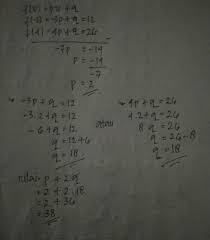 f(x) = px + q
f(-3) = -3p + q = 12
f(4) = 4p + q = 26
-7p = -14
p = -14
-7
p = 2
-3p + q = 12
-3.2 + q = 12
-6 + q = 12
q = 12+6
q = 18
atau
4p + q = 26
4.2 + q = 26
8 q = 26
q = 26-8
q = 18
nilai p + 2q
= 2 + 2.18
= 2 + 36
= 38